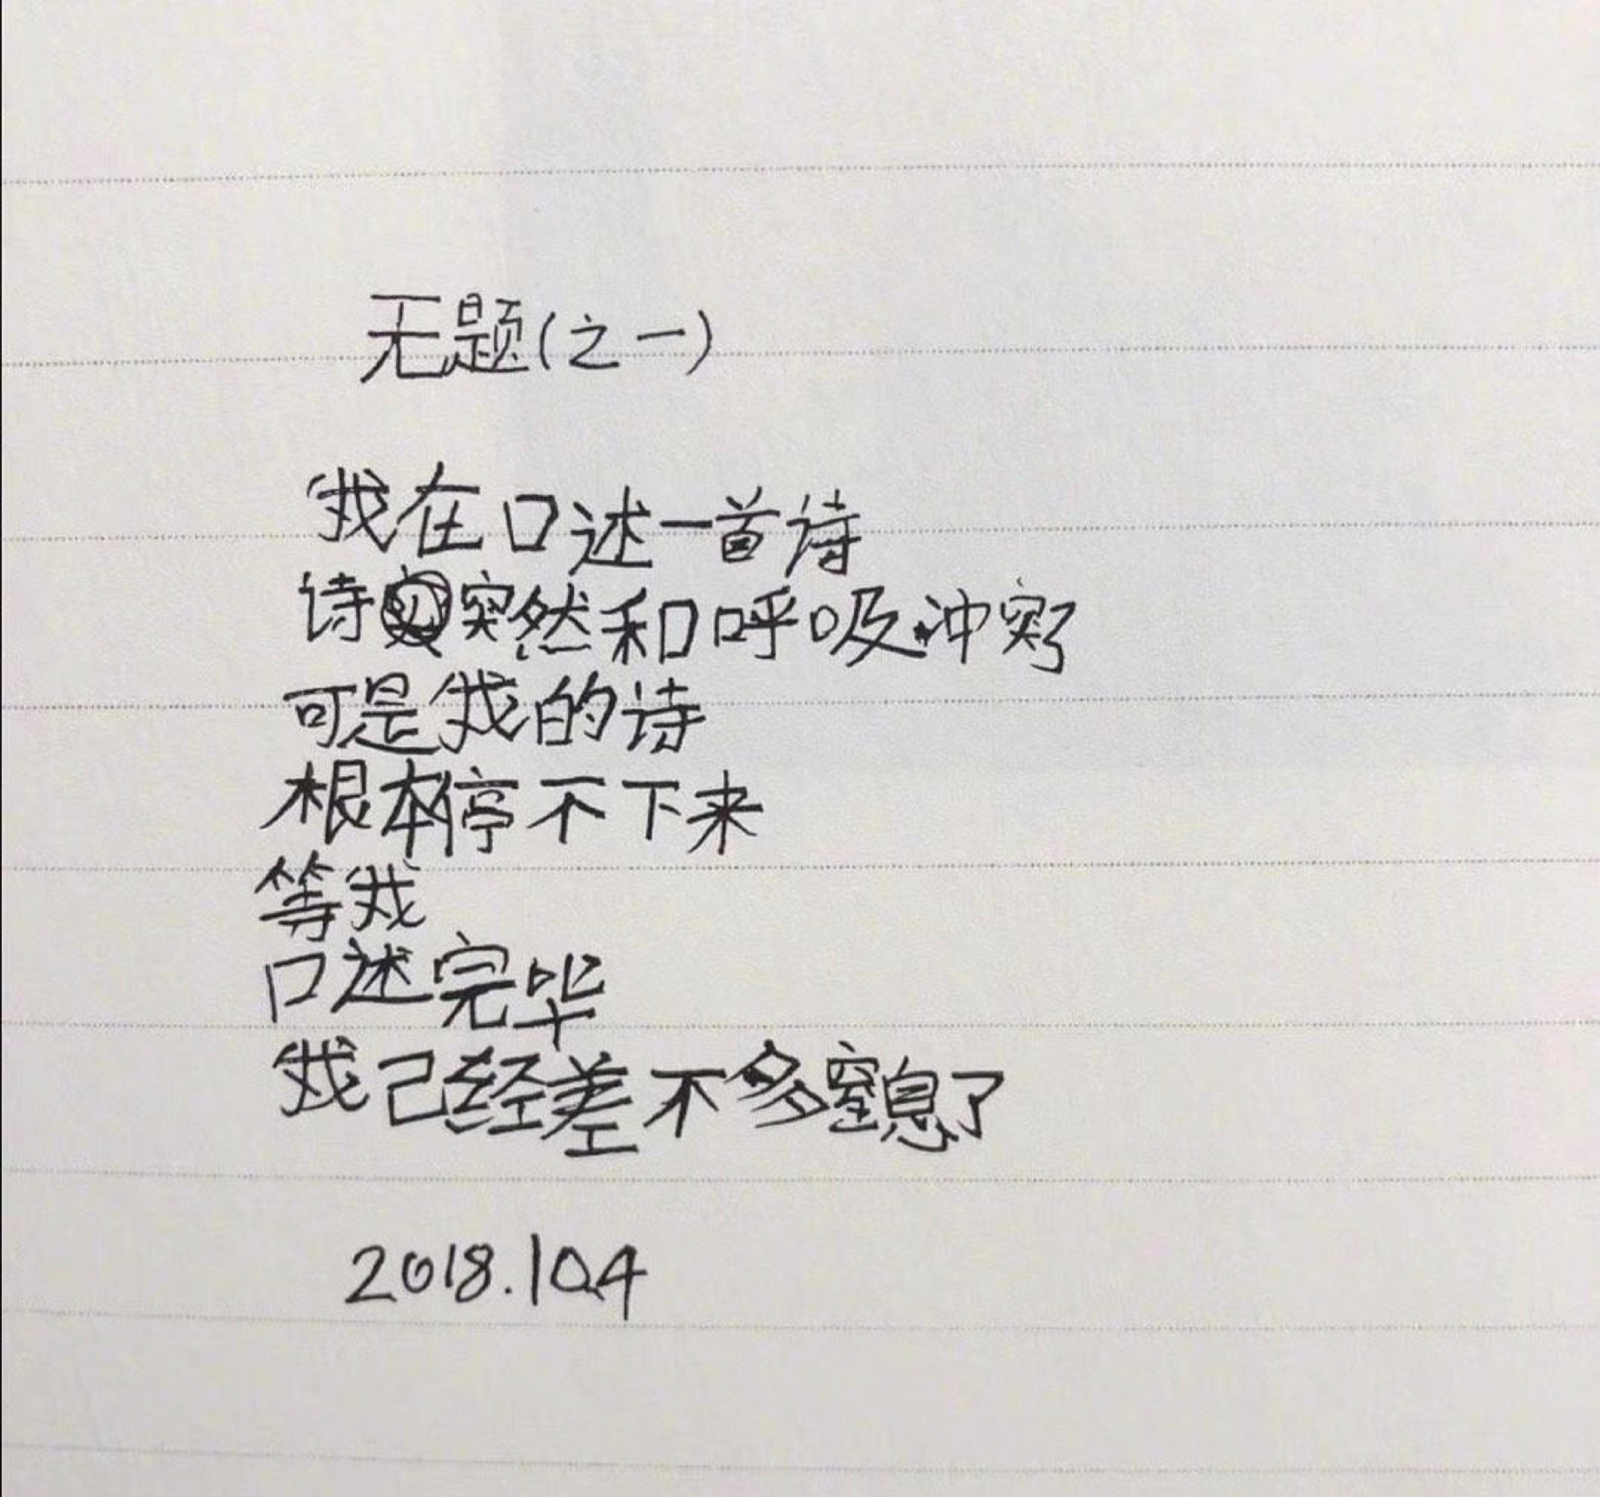 无题(之一)
我在口述一首诗
诗突然和呼吸冲突了
可是我的诗
根本停不下来
等我
口述完毕
我己经差不多窒息了
2018.10.4